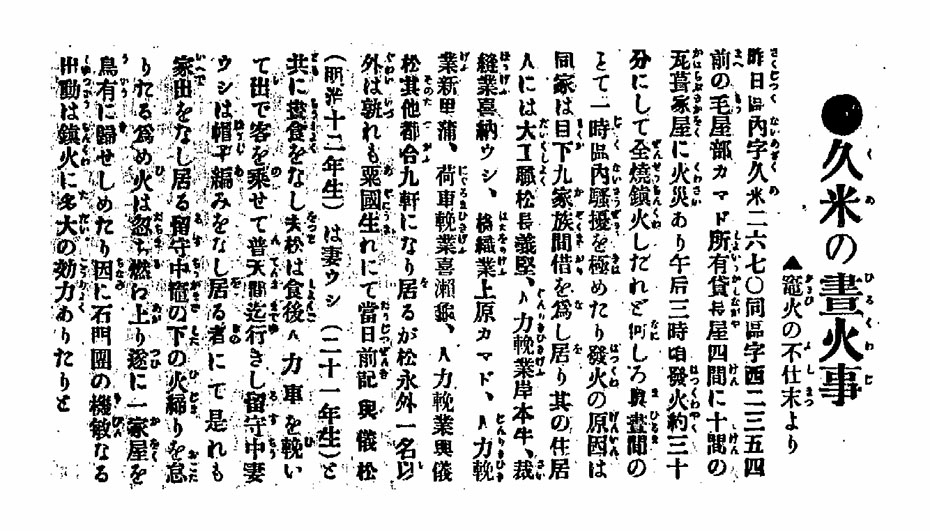 ●久米の晝火事
▲竈火の不仕末より
昨日區內字久米二六七〇同區字西二三五四
前の毛屋部カマド所有貸長屋四間に十間の
瓦葺家屋に火災あり午后三時頃發火約三十
分にして全燒鎭火しだれど何しろ眞晝間の
とて一時區內騷擾を極めたり發火の原因は
同家は目下九家族間借を爲し居り其の住居
人には大工職松長義堅、人力輓業岸本牛、裁
縫業喜納ウシ、機織業上原カマド、人力輓
業新里蒲、荷車輓業喜瀨龜、人力輓業與儀
松其他都合九軒になり居るが松永外一名以
外は孰れも粟國生れにて當日前記與儀松
(明治十二年生)は妻ウシ(二十一年生)と
共に晝食をなし夫松は食後人力車を輓い
て出で客を乘せて普天間迄行きし留守中妻
ウシは帽子編みをなし居る者にて是れも
家出をなし居る留守中竈の下の火締りを怠
りたる爲め火は忽ち燃わ上り遂に一家屋を
烏有に歸せしめたり因に石門團の機敏なる
出動は鎭火に多大の効力ありたりと